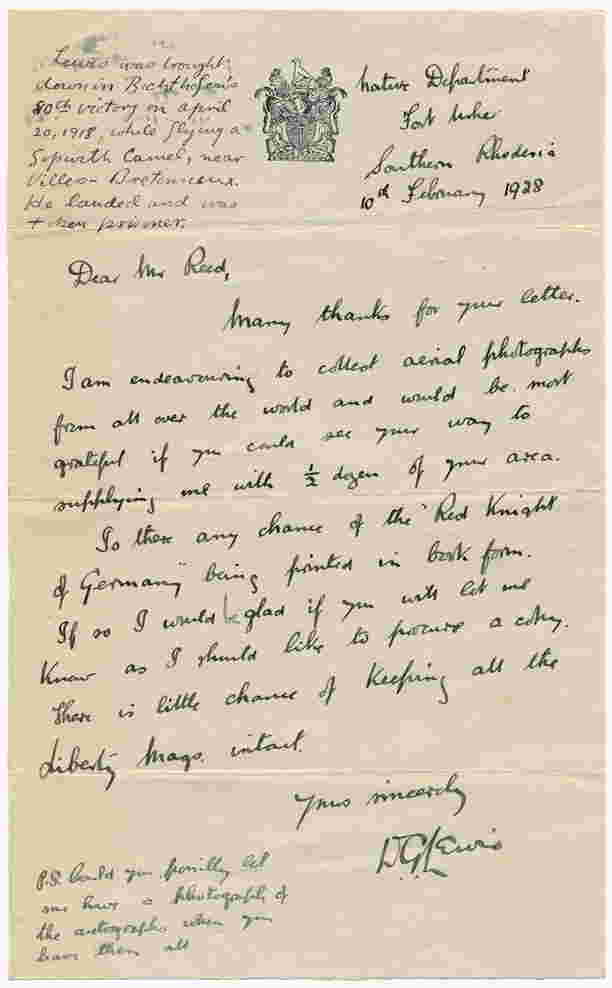 Lewis was brought
down in Richthofen's
80th victory on April
20, 1918, while flying a
Sopwith Camel, near
Villers-Bretonneux.
He landed and was
taken prisoner.
Native Department
Fort Usher
Southern Rhodesia
10th February 1928
Dear Mr Reed,
Many thanks for your letter.
I am endeavouring to collect aerial photographs
from all over the world and would be most
grateful if you could see your way to
supplying me with ½ dozen of your area.
Is there any chance of the "Red Knight
of Germany" being printed in book form.
If so I would be glad if you will let me
know as I should like to procure a copy.
There is little chance of keeping all the
Liberty Mags. intact.
Yours sincerely
D.G. Lewis
P.S. Could you possibly let
me have a photograph of
the autographs when you
have them all